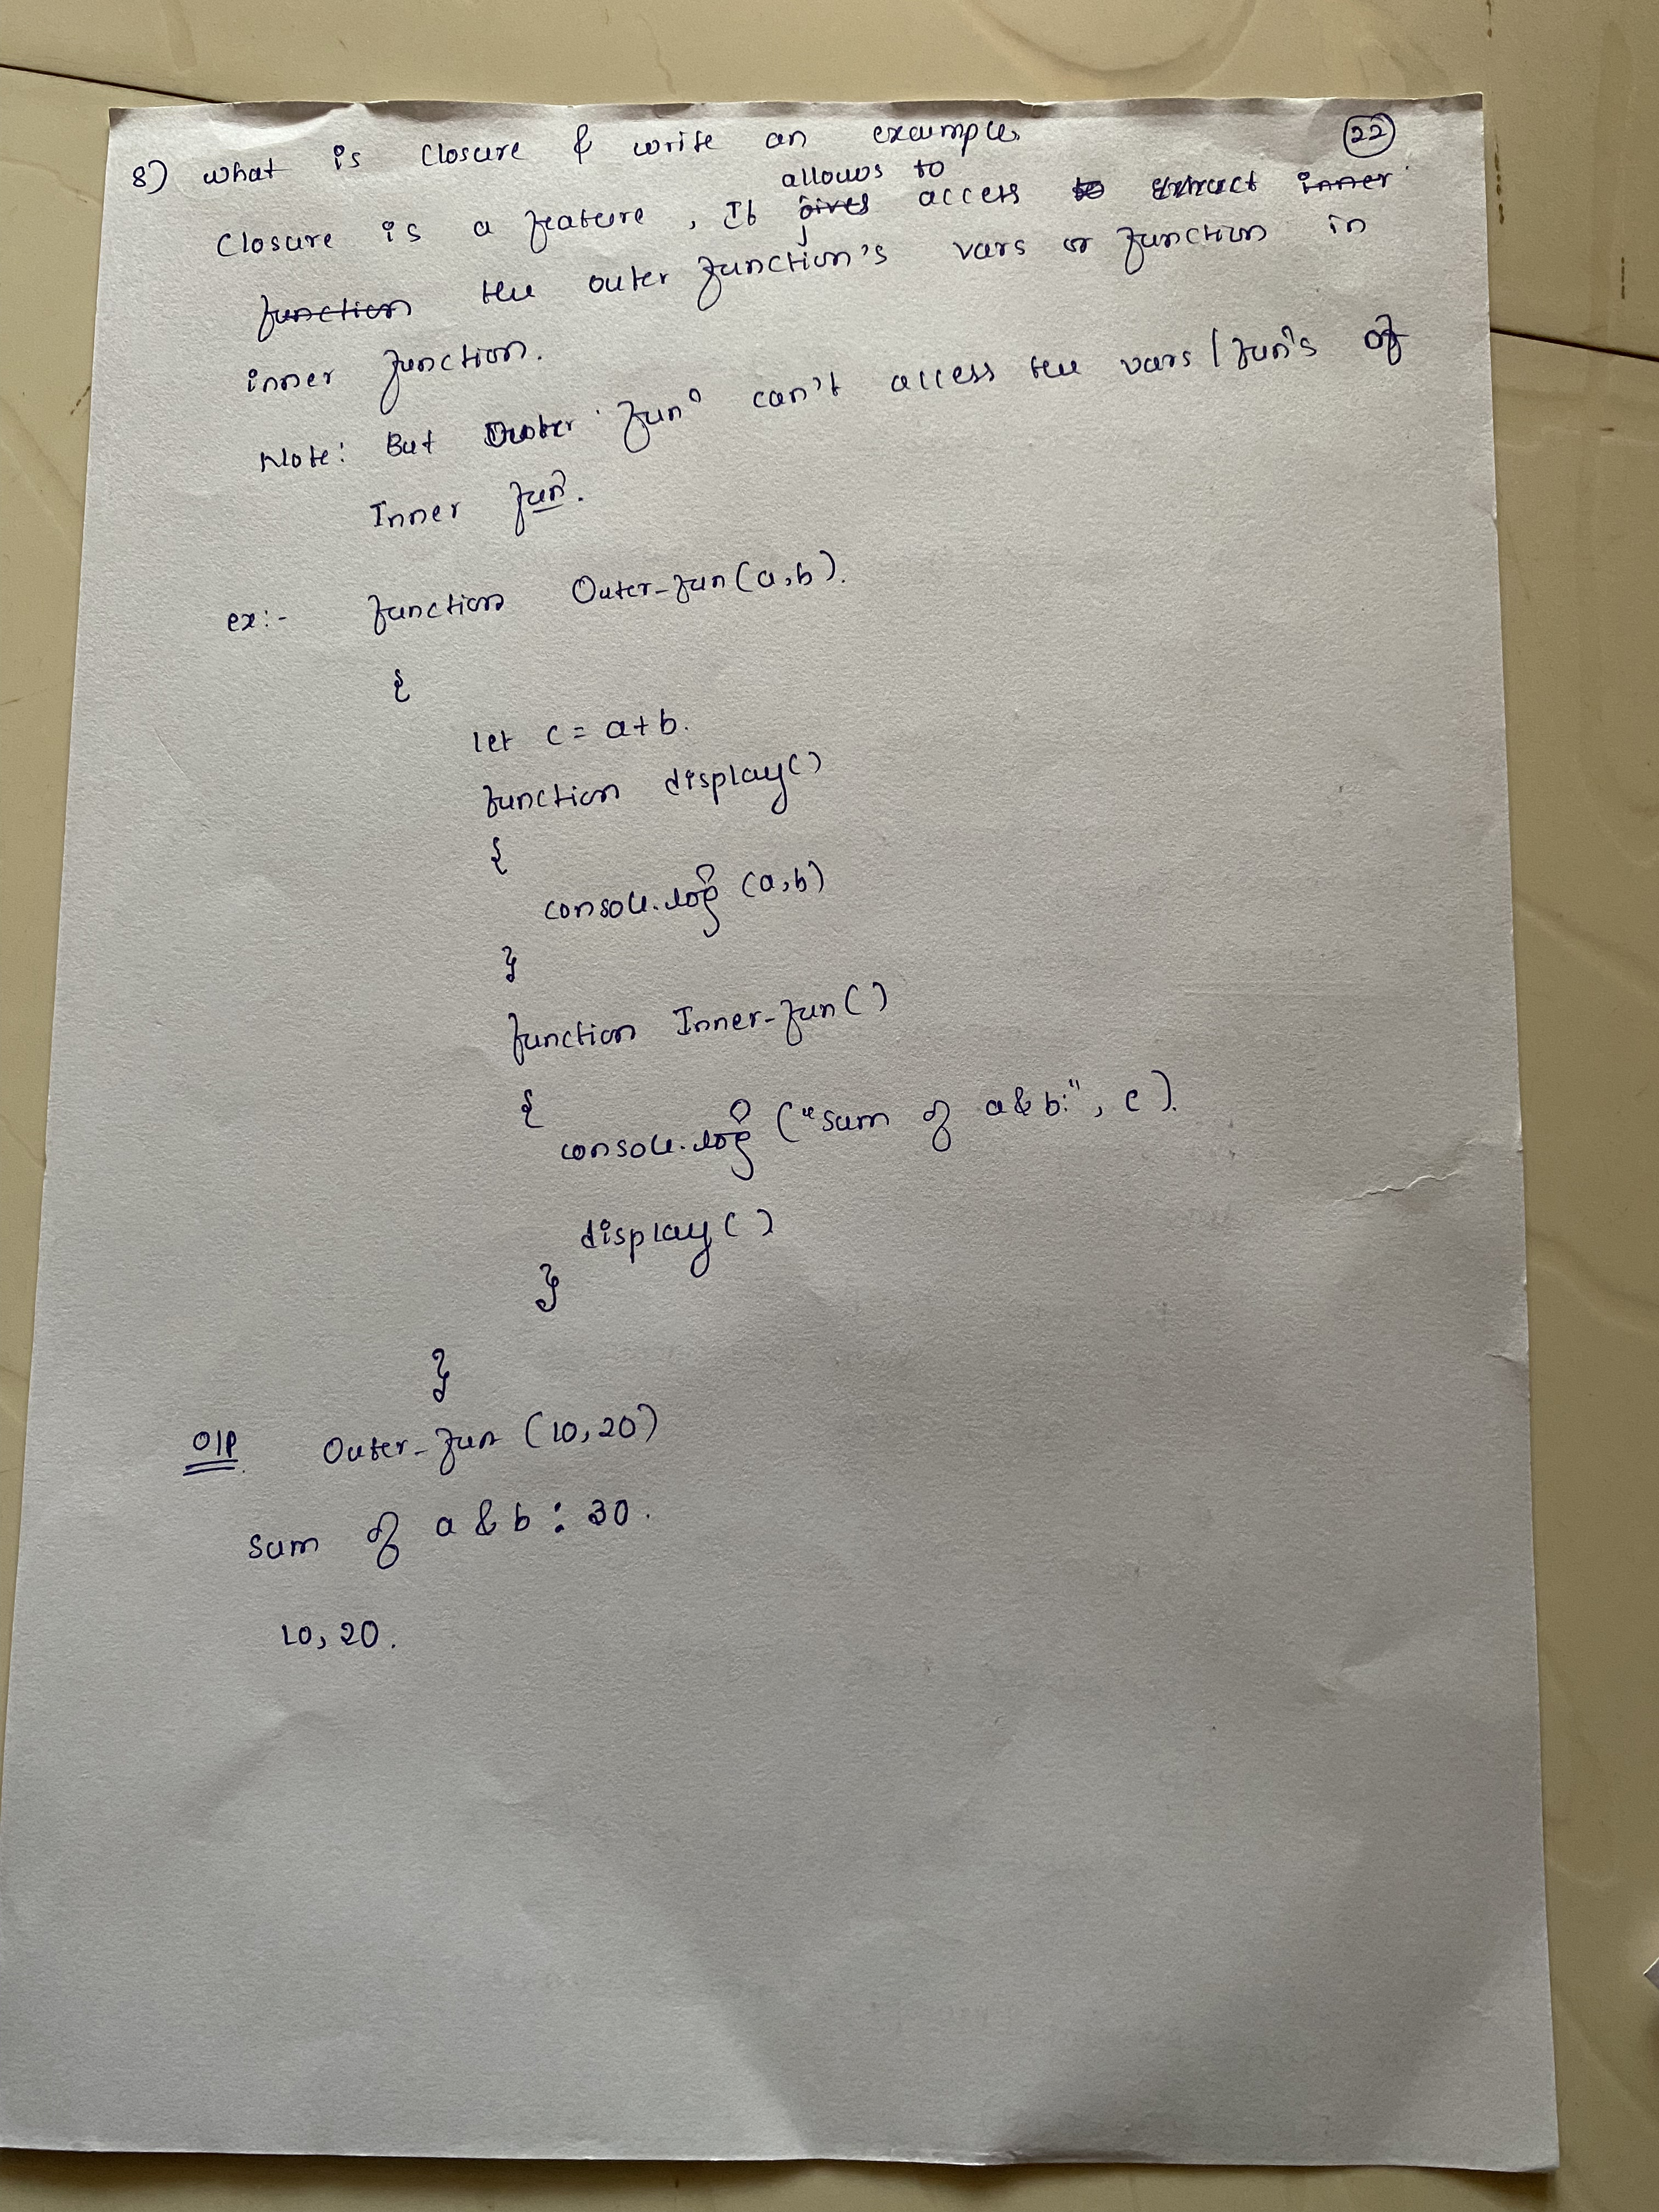 8) what is closure & write an example. (22)
closure is a feature, It gives allows to access to extract inner
function the outer function's vars or function in
inner function.
Note: But Outer fun^n can't access the vars / fun^n's of
Inner fun^n.
ex:- function Outer-fun(a,b).
{
let c = a+b.
function display()
{
console.log (a,b)
}
function Inner-fun()
{
console.log ("sum of a&b:", c).
display()
}
}
O/P Outer-fun (10,20)
sum of a & b : 30.
10, 20.